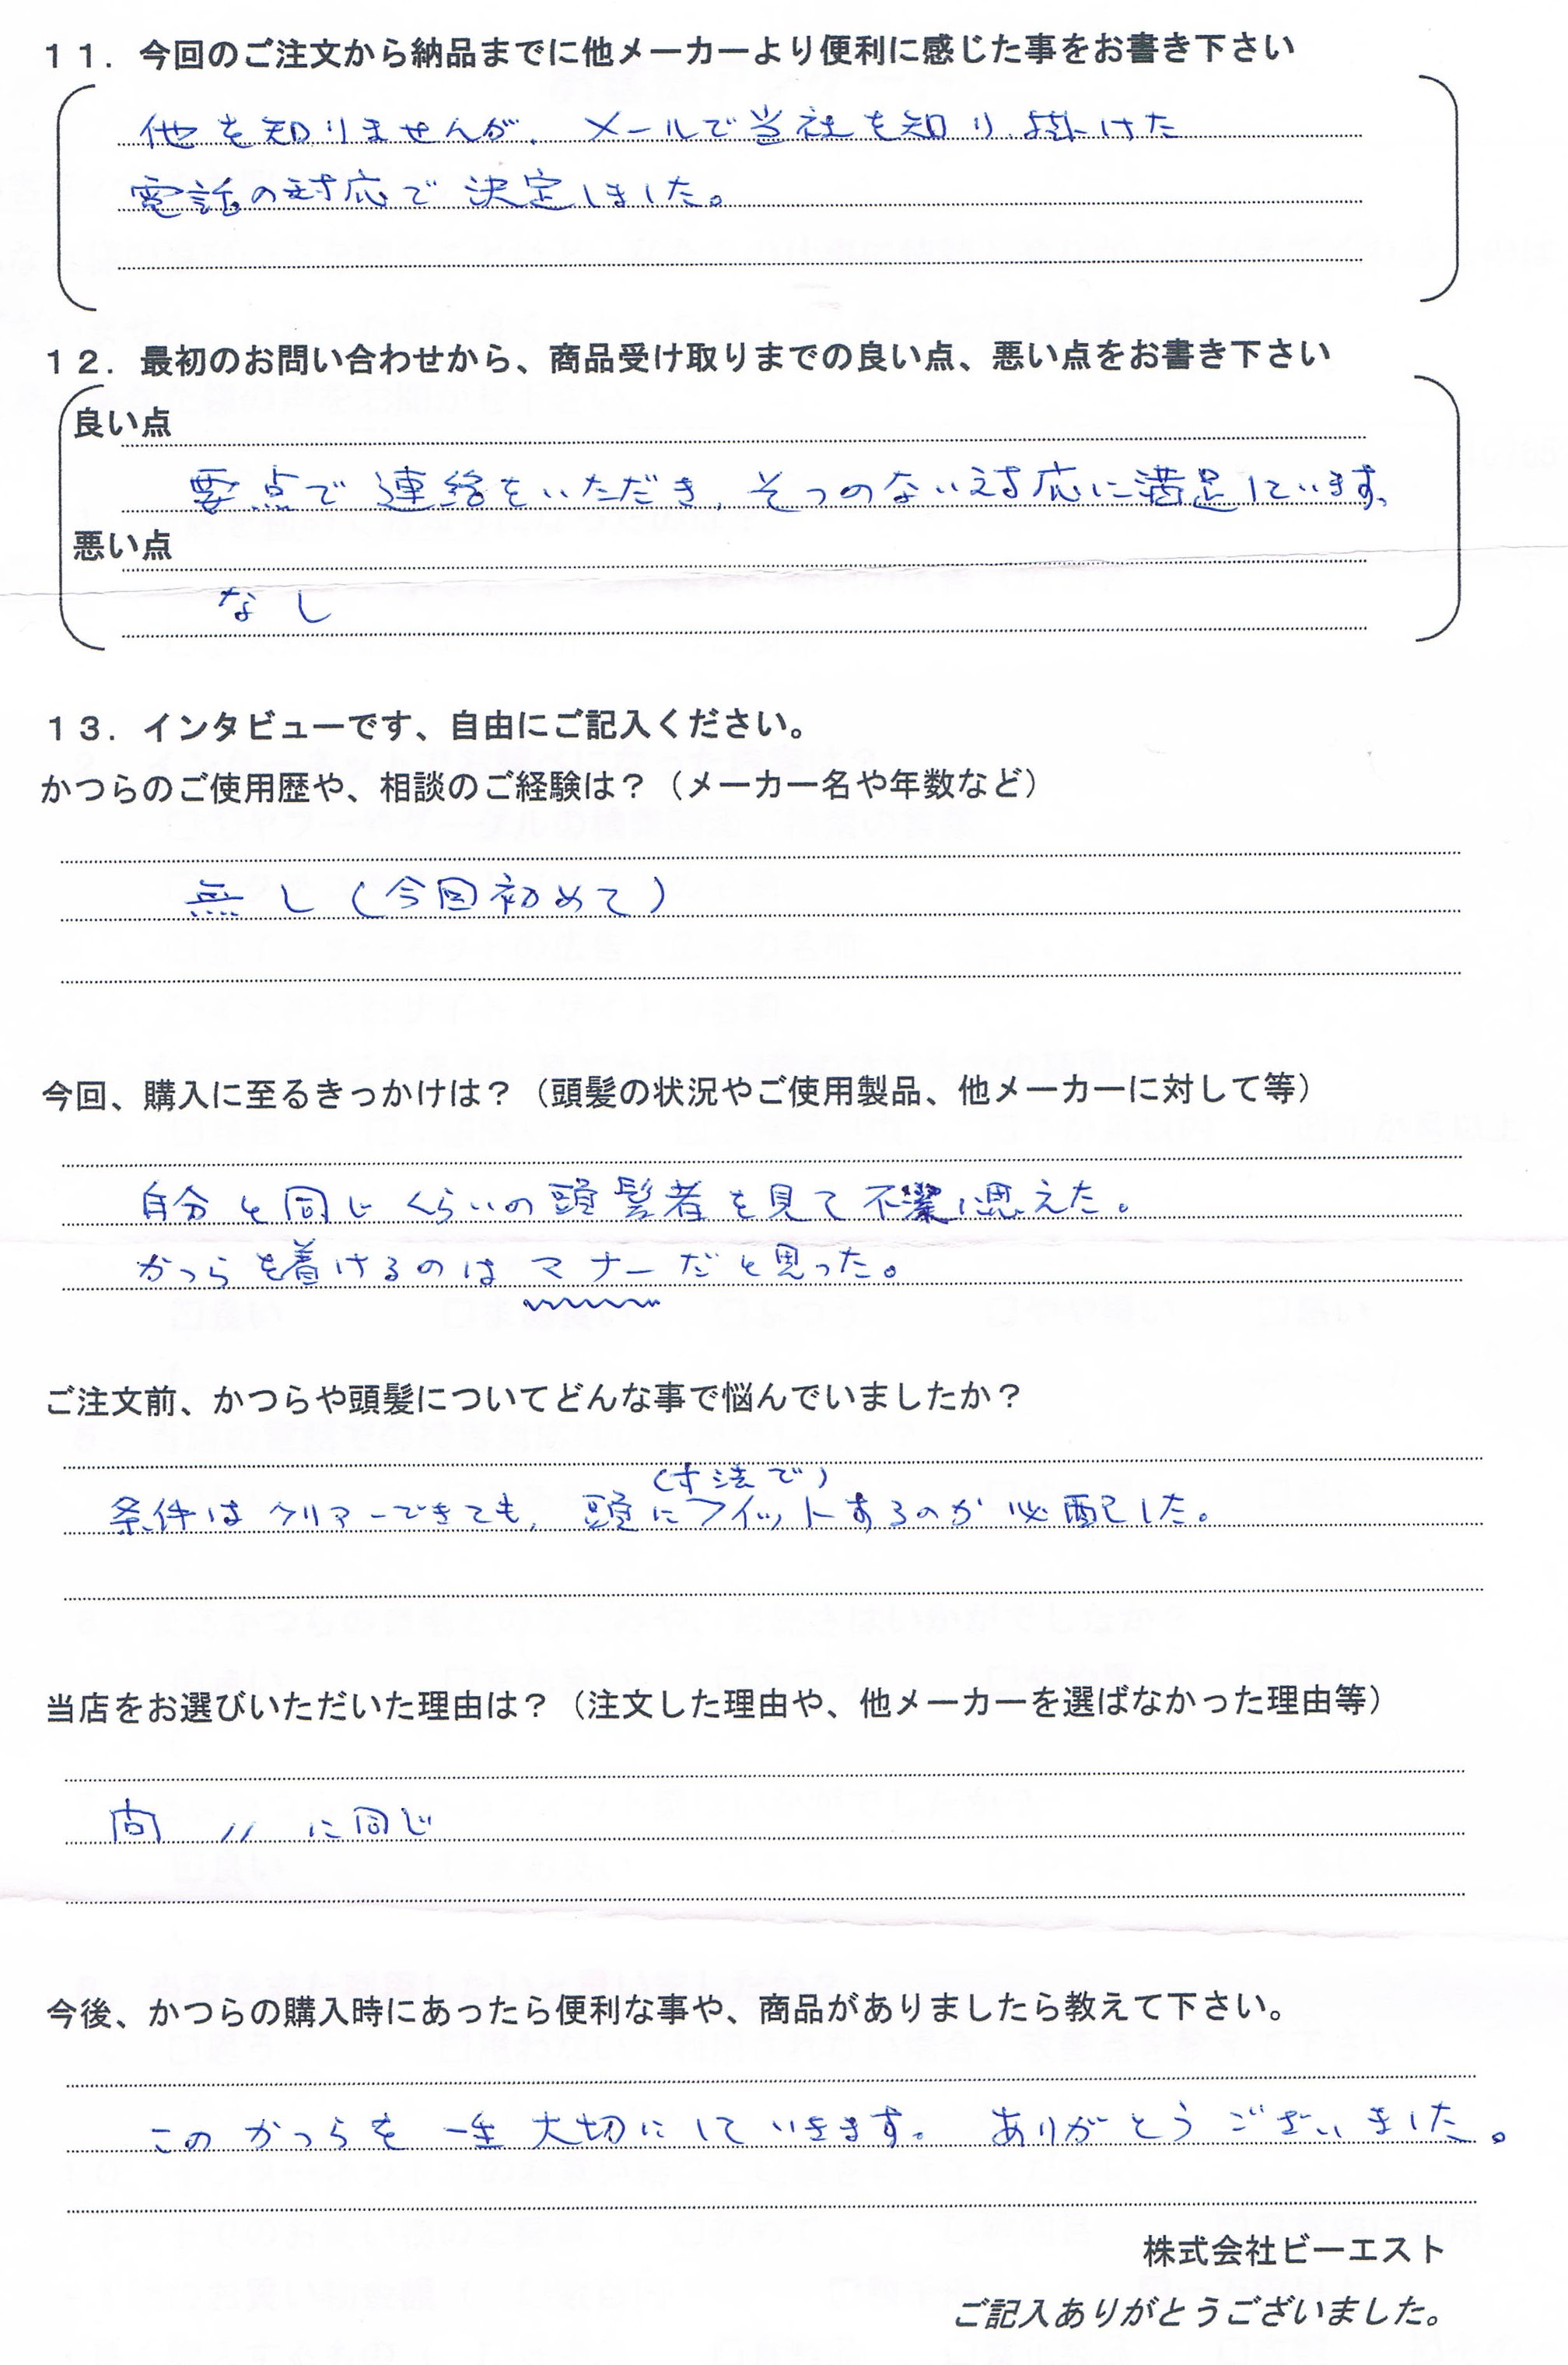 １１．今回のご注文から納品までに他メーカーより便利に感じた事をお書き下さい
他を知りませんが、メールで当社を知り、掛けた
電話の対応で決定しました。
１２．最初のお問い合わせから、商品受け取りまでの良い点、悪い点をお書き下さい
良い点
要点で連絡をいただき、そつのない対応に満足しています。
悪い点
なし
１３．インタビューです、自由にご記入ください。
かつらのご使用歴や、相談のご経験は？（メーカー名や年数など）
無し（今回初めて）
今回、購入に至るきっかけは？（頭髪の状況やご使用製品、他メーカーに対して等）
自分と同じくらいの頭髪者を見て不潔に思えた。
かつらを着けるのはマナーだと思った。
ご注文前、かつらや頭髪についてどんな事で悩んでいましたか？
（寸法で）
条件はクリアーできても、頭にフィットするのか心配した。
当店をお選びいただいた理由は？（注文した理由や、他メーカーを選ばなかった理由等）
問 〃 に同じ
今後、かつらの購入時にあったら便利な事や、商品がありましたら教えて下さい。
このかつらを一生大切にしていきます。ありがとうございました。
株式会社ビーエスト
ご記入ありがとうございました。